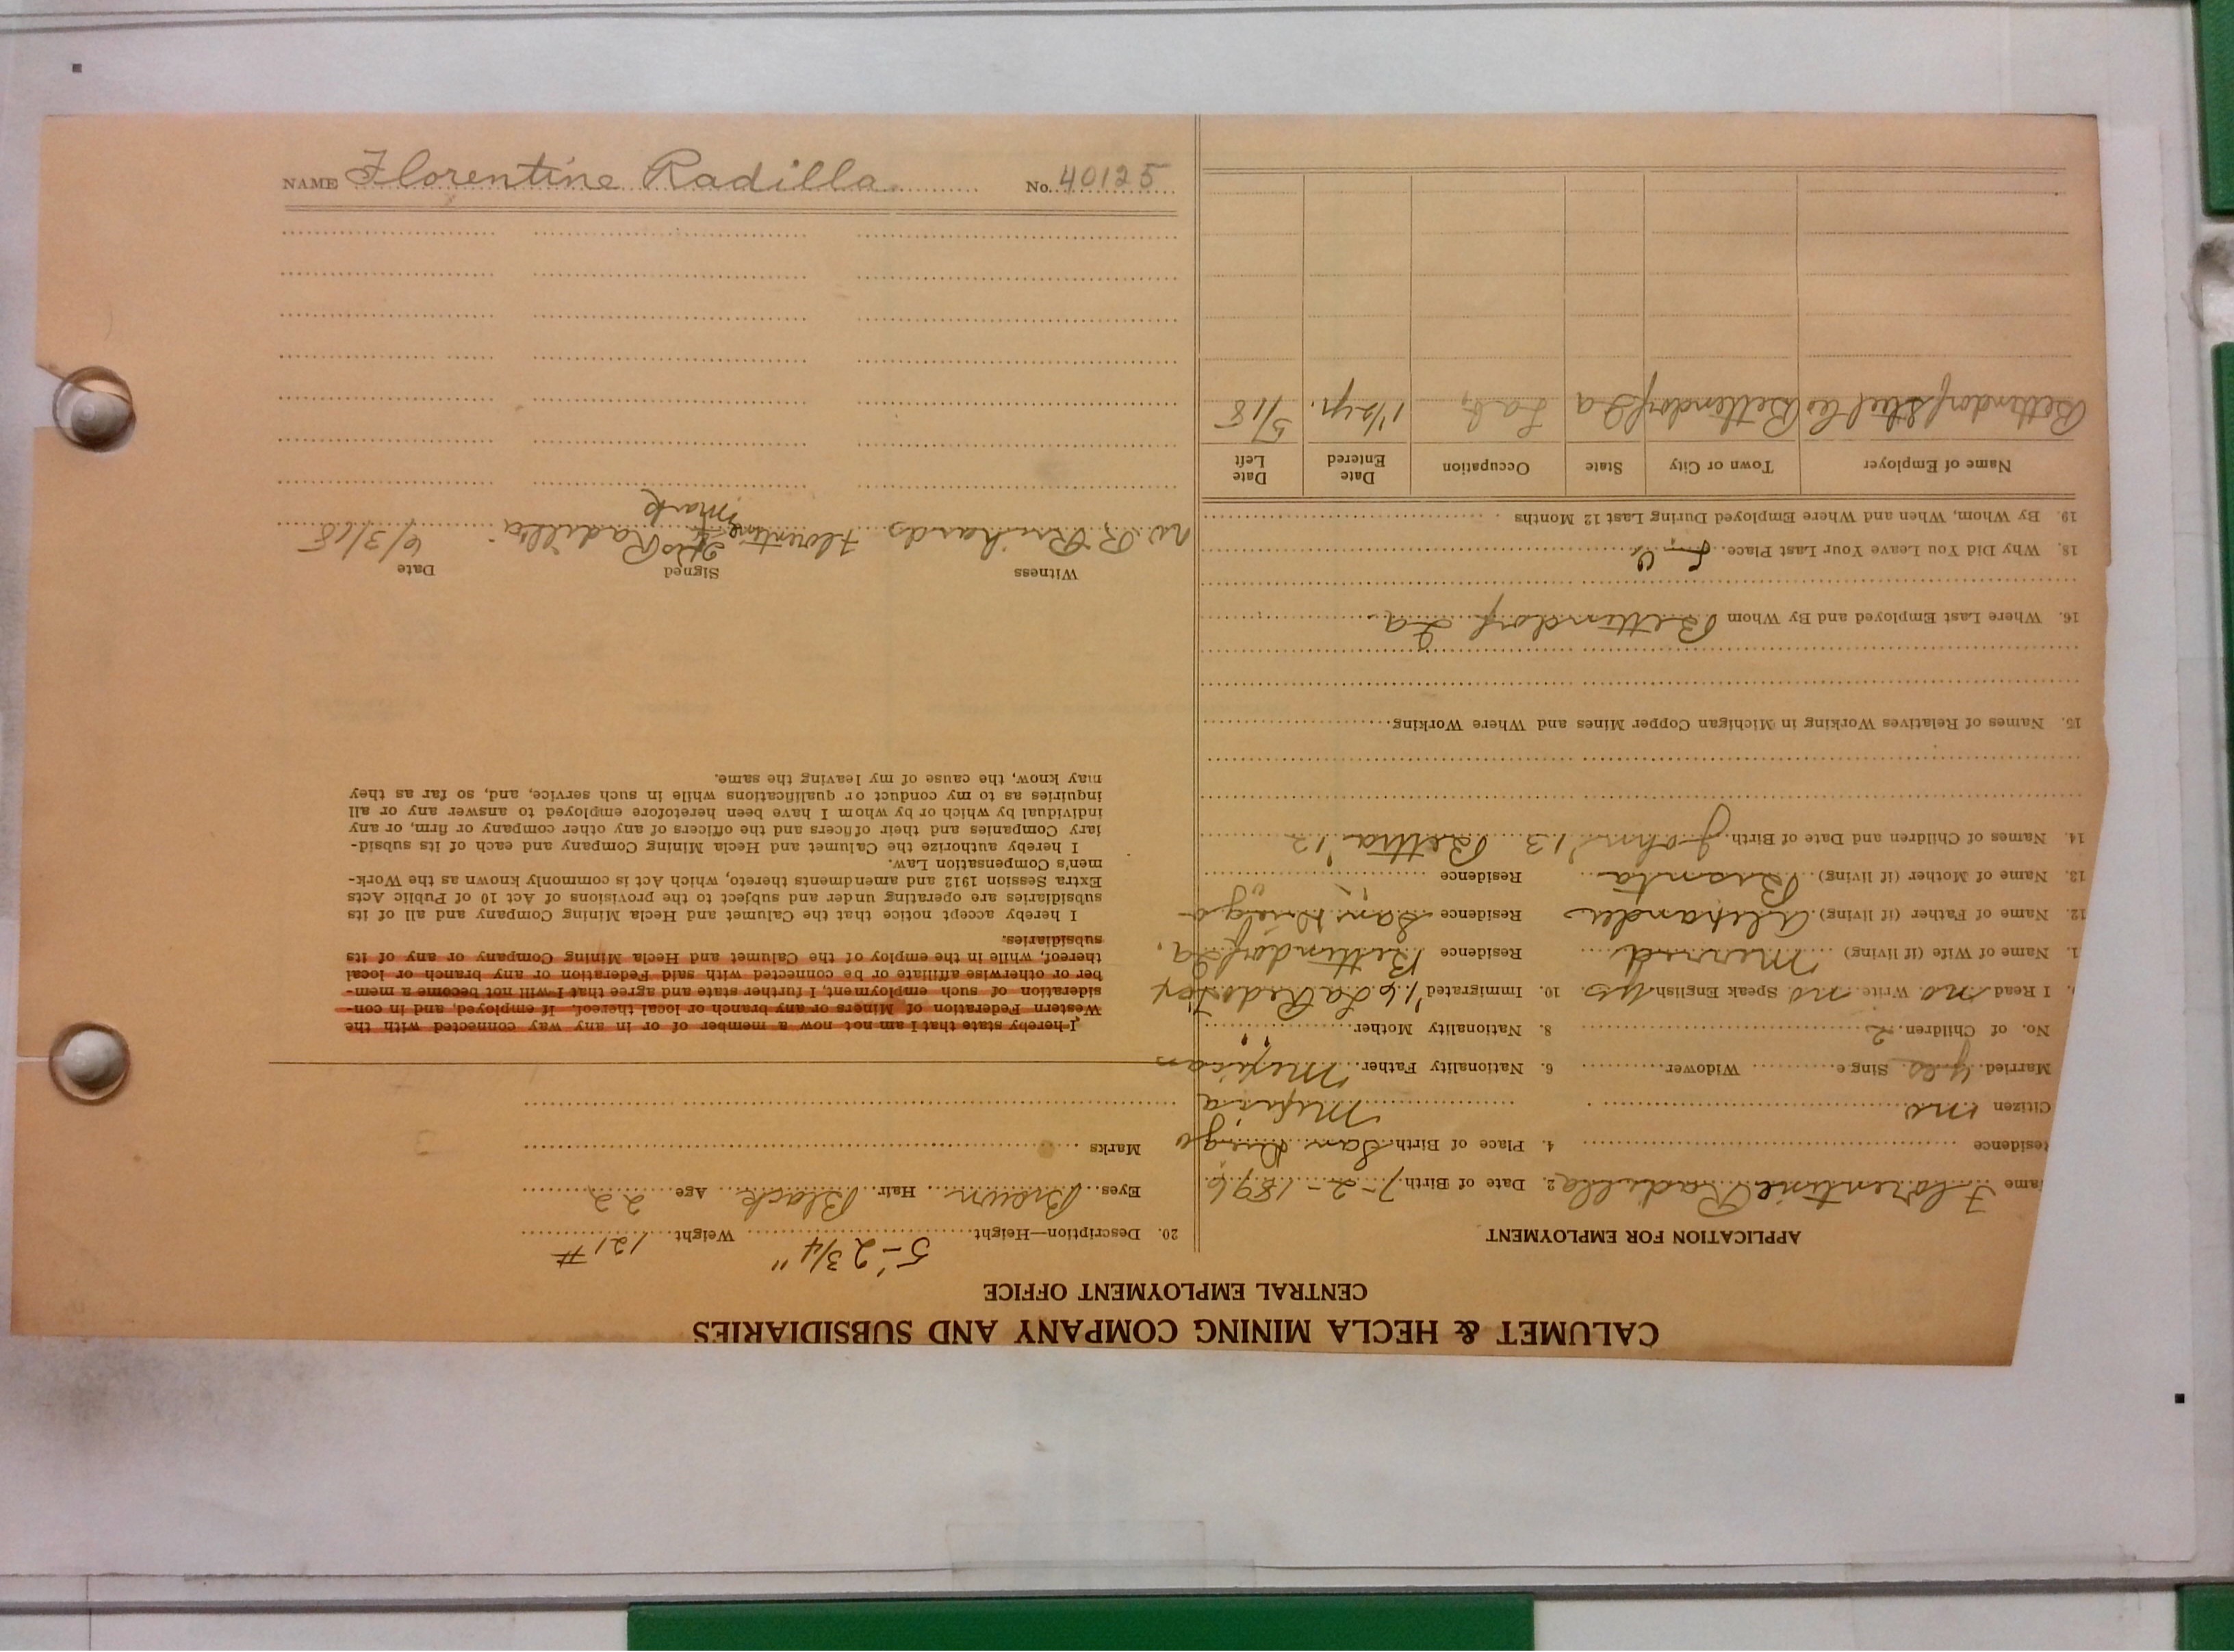 CALUMET & HECLA MINING COMPANY AND SUBSIDIARIES
CENTRAL EMPLOYMENT OFFICE
APPLICATION FOR EMPLOYMENT
ame Florentine Radilla 2. Date of Birth 7-2-1896
esidence 4. Place of Birth San Diego
Citizen no Mexico
Married yes Single Widower 6. Nationality Father Mexican
No. of Children 2 8. Nationality Mother " "
I Read no Write no Speak English yes 10. Immigrated '16 La Redo Tex
1. Name of Wife (if living) Residence Bettendorf Ia.
12. Name of Father (if living) Residence San Diego
13. Name of Mother (if living) Residence " "
14. Names of Children and Date of Birth John '13 '12
15. Names of Relatives Working in Michigan Copper Mines and Where Working
16. Where Last Employed and By Whom Bettendorf Ia
18. Why Did You Leave Your Last Place
19. By Whom, When and Where Employed During Last 12 Months
Name of Employer Town or City State Occupation Date Entered Date Left
Bettendorf Steel Co Bettendorf Ia Lab. 1 1/2 yr. 5/18
20. Description—Height 5'-2 3/4" Weight 121 #
Eyes Brown Hair Black Age 22
Marks
I hereby state that I am not now a member of or in any way connected with the
Western Federation of Miners or any branch or local thereof. If employed, and in con-
sideration of such employment, I further state and agree that I will not become a mem-
ber or otherwise affiliate or be connected with said Federation or any branch or local
thereof, while in the employ of the Calumet and Hecla Mining Company or any of its
subsidiaries.
I hereby accept notice that the Calumet and Hecla Mining Company and all of its
subsidiaries are operating under and subject to the provisions of Act 10 of Public Acts
Extra Session 1912 and amendments thereto, which Act is commonly known as the Work-
men's Compensation Law.
I hereby authorize the Calumet and Hecla Mining Company and each of its subsid-
iary Companies and their officers and the officers of any other company or firm, or any
individual by which or by whom I have been heretofore employed to answer any or all
inquiries as to my conduct or qualifications while in such service, and, so far as they
may know, the cause of my leaving the same.
Witness Signed Date
W. R. Florentine his x Radilla 6/3/18
mark
NAME Florentine Radilla No. 40125